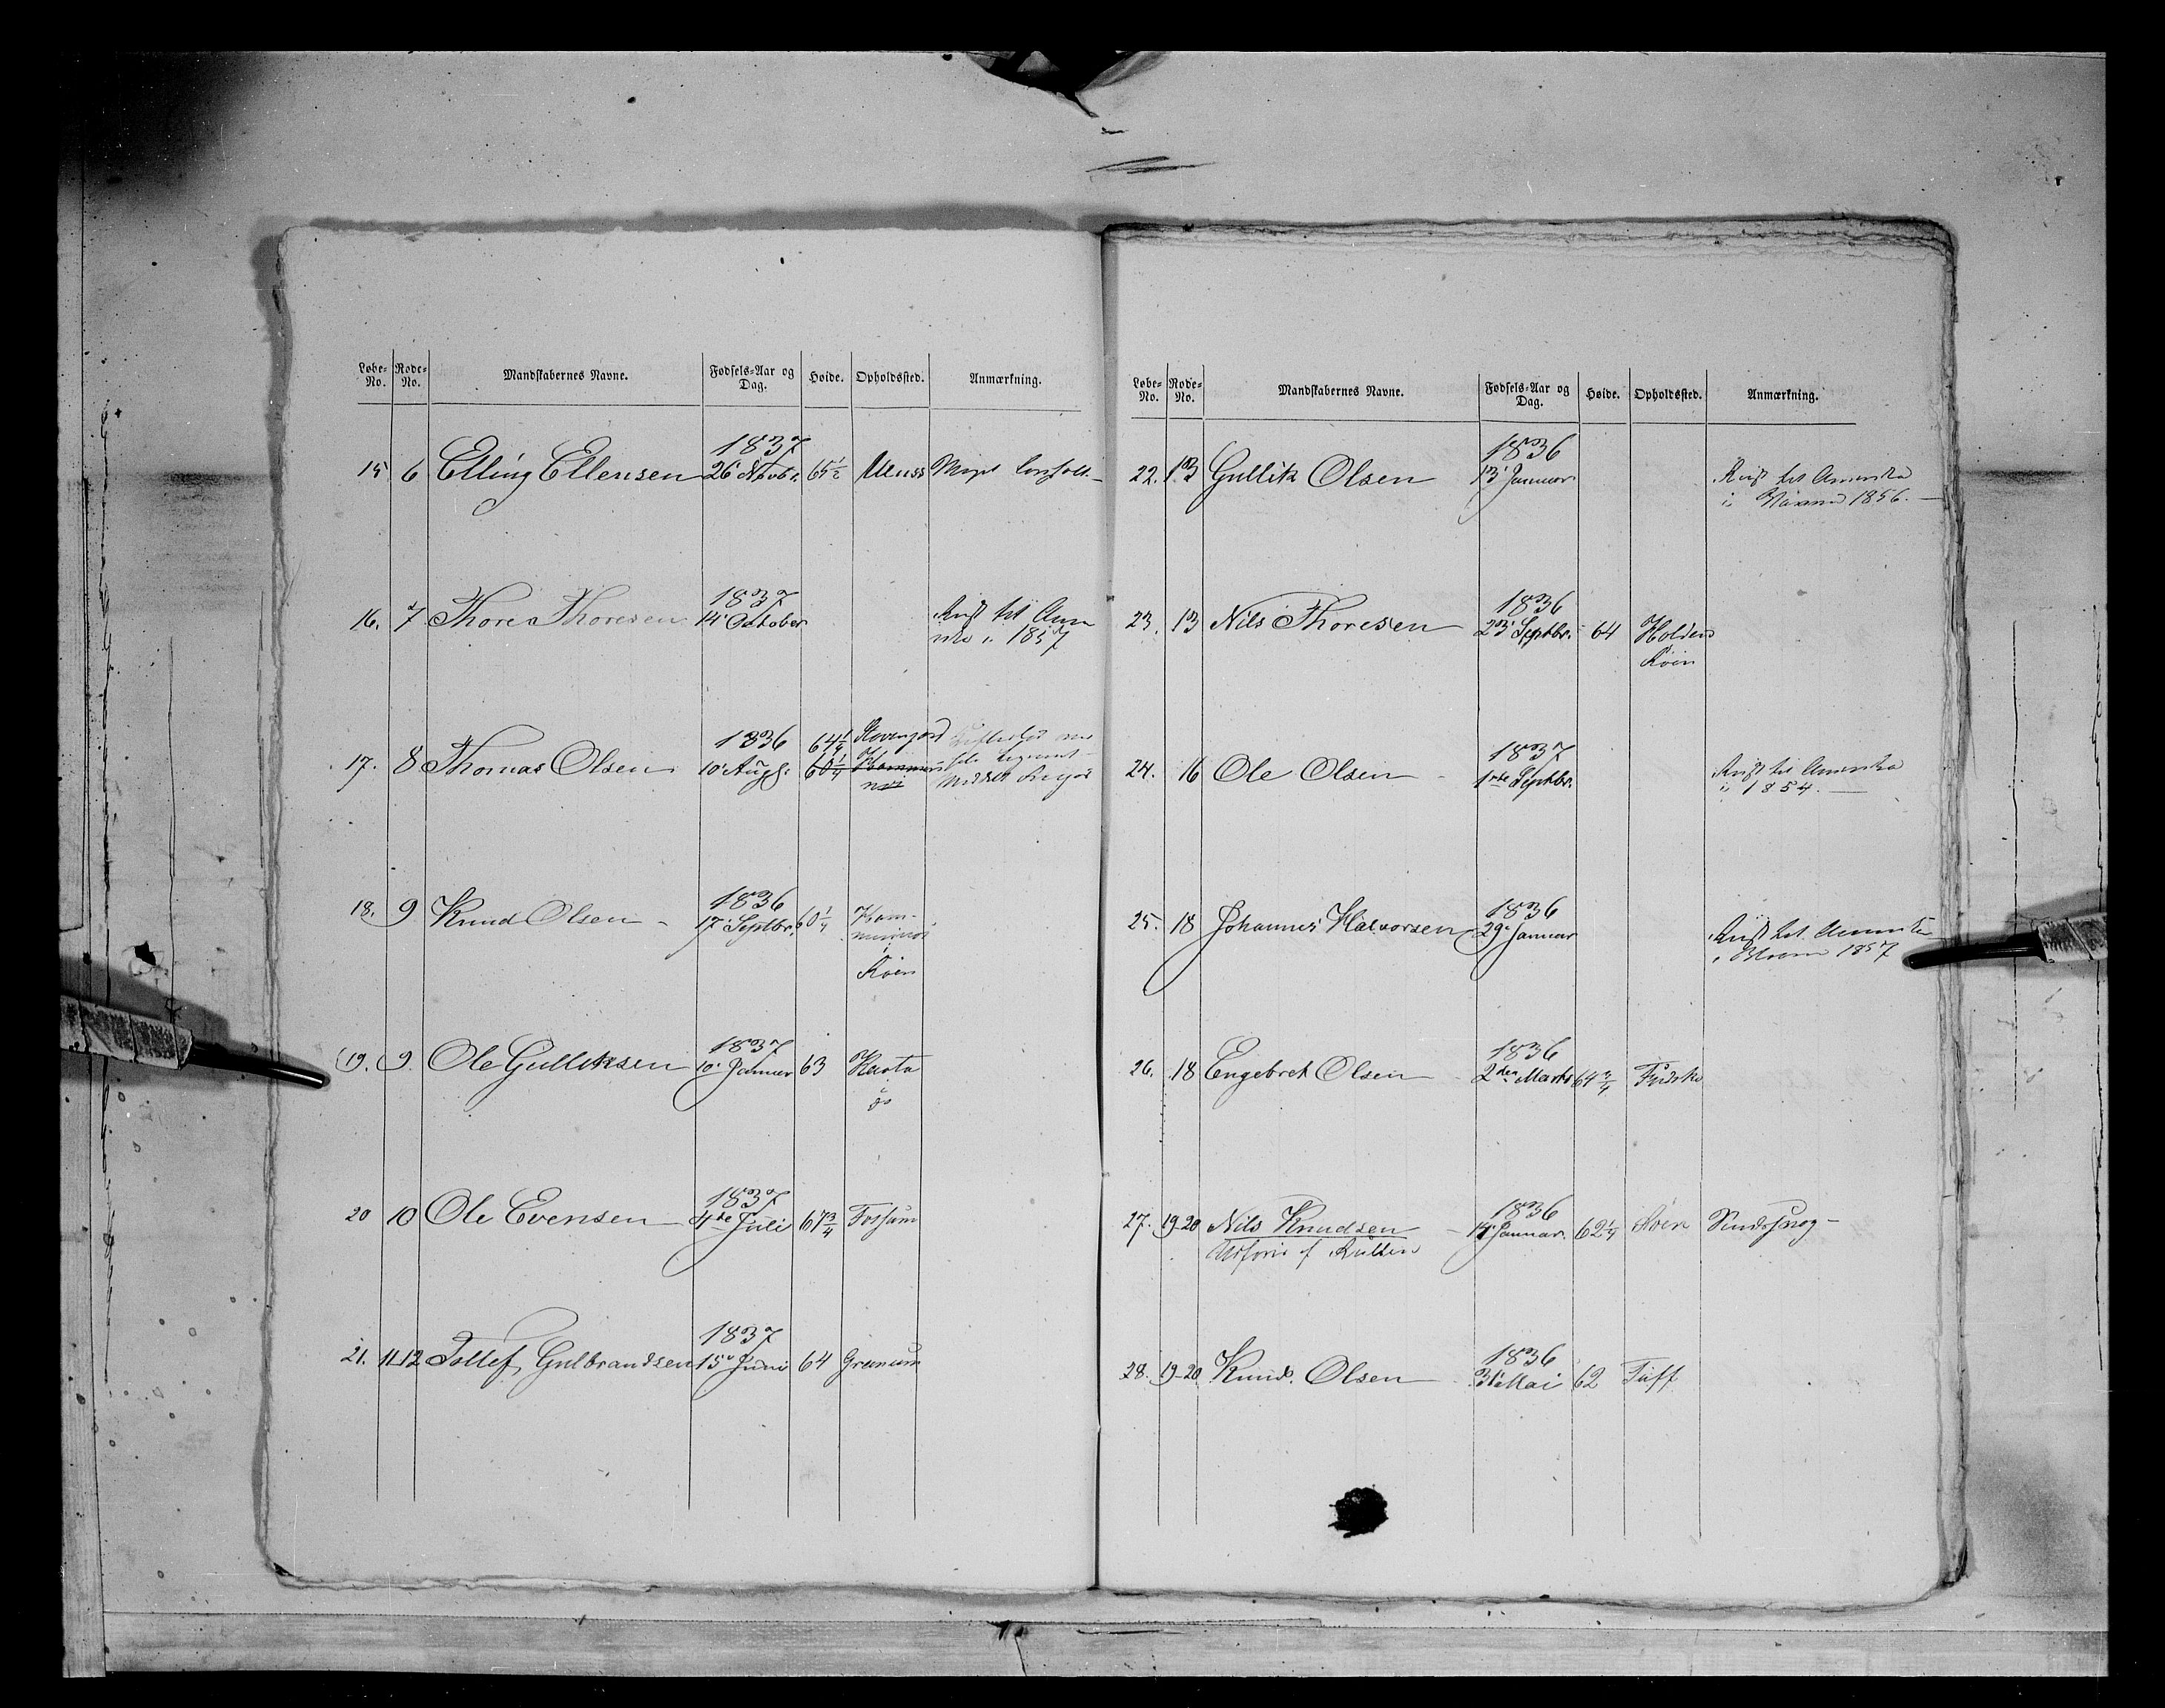 Løbe-No. Rode-No. Mandskabernes Navne. Fødsels-Aar og Dag. Høide. Opholdssted. Anmærkning.
1837
15 6 Elling Ellensen 26' Novbr. 65 1/2
1837
16. 7 Thore Thoresen 14' October
til Ame
rika i 1857
1836 64 1/4
17. 8 Thomas Olsen 10' Augst. 60 1/4
1836
18. 9 Knud Olsen 17' Septbr. 60 1/4
i
Røen
1837
19. 9. Ole Gulliksen 10' Januar 63
1837
20 10 Ole Evensen 4de Juli 67 3/4 Fossum
1837
21. 11-12 Tollef Gulbrandsen 15' Juni 64 Grenum
Løbe-No. Rode-No. Mandskabernes Navne. Fødsels-Aar og Dag. Høide. Opholdssted. Anmærkning.
1836
22. 13 Gullik Olsen 13' Januar Reist til Amerika
i 1856.
1836
23. 13 Nils Thoresen 23' Septbr. 64 Holden
Røen
1837
24. 16 Ole Olsen 1ste Septbr. Reist til Amerika
i 1854.
1836
25. 18 Johannes Halvorsen 29' Januar Reist til Amerika
1857
1836
26. 18 Engebret Olsen 2den Marts 64 3/4
1836
27. 19-20 Nils Knudsen 14' Januar. 62 1/4 Røen
1836
28. 19-20 Knud Olsen 31' Mai 62 Tuff